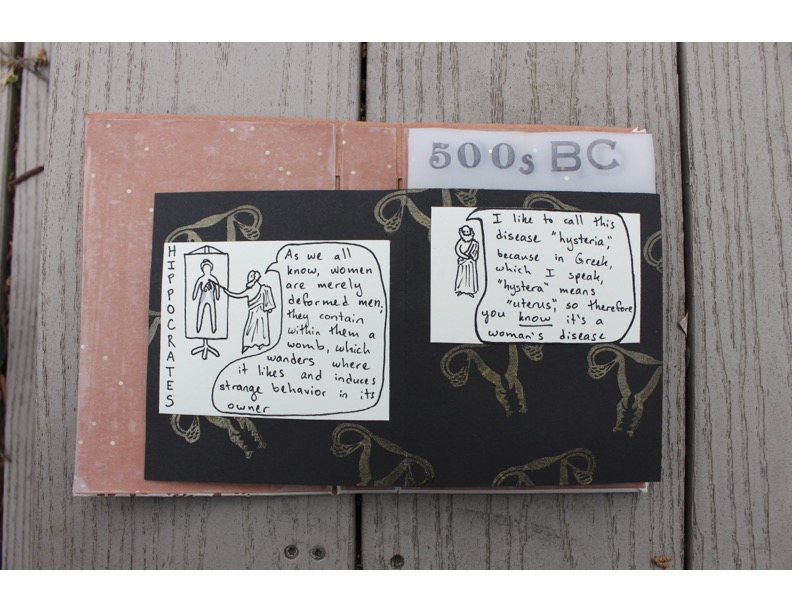 500s BC
HIPPOCRATES
As we all
know, women
are merely
deformed men;
they contain
within them a
womb, which
wanders where
it likes and induces
strange behavior in its
owner
I like to call this
disease "hysteria",
because in Greek,
which I speak,
"hystera" means
"uterus", so therefore
you know it's a
woman's disease